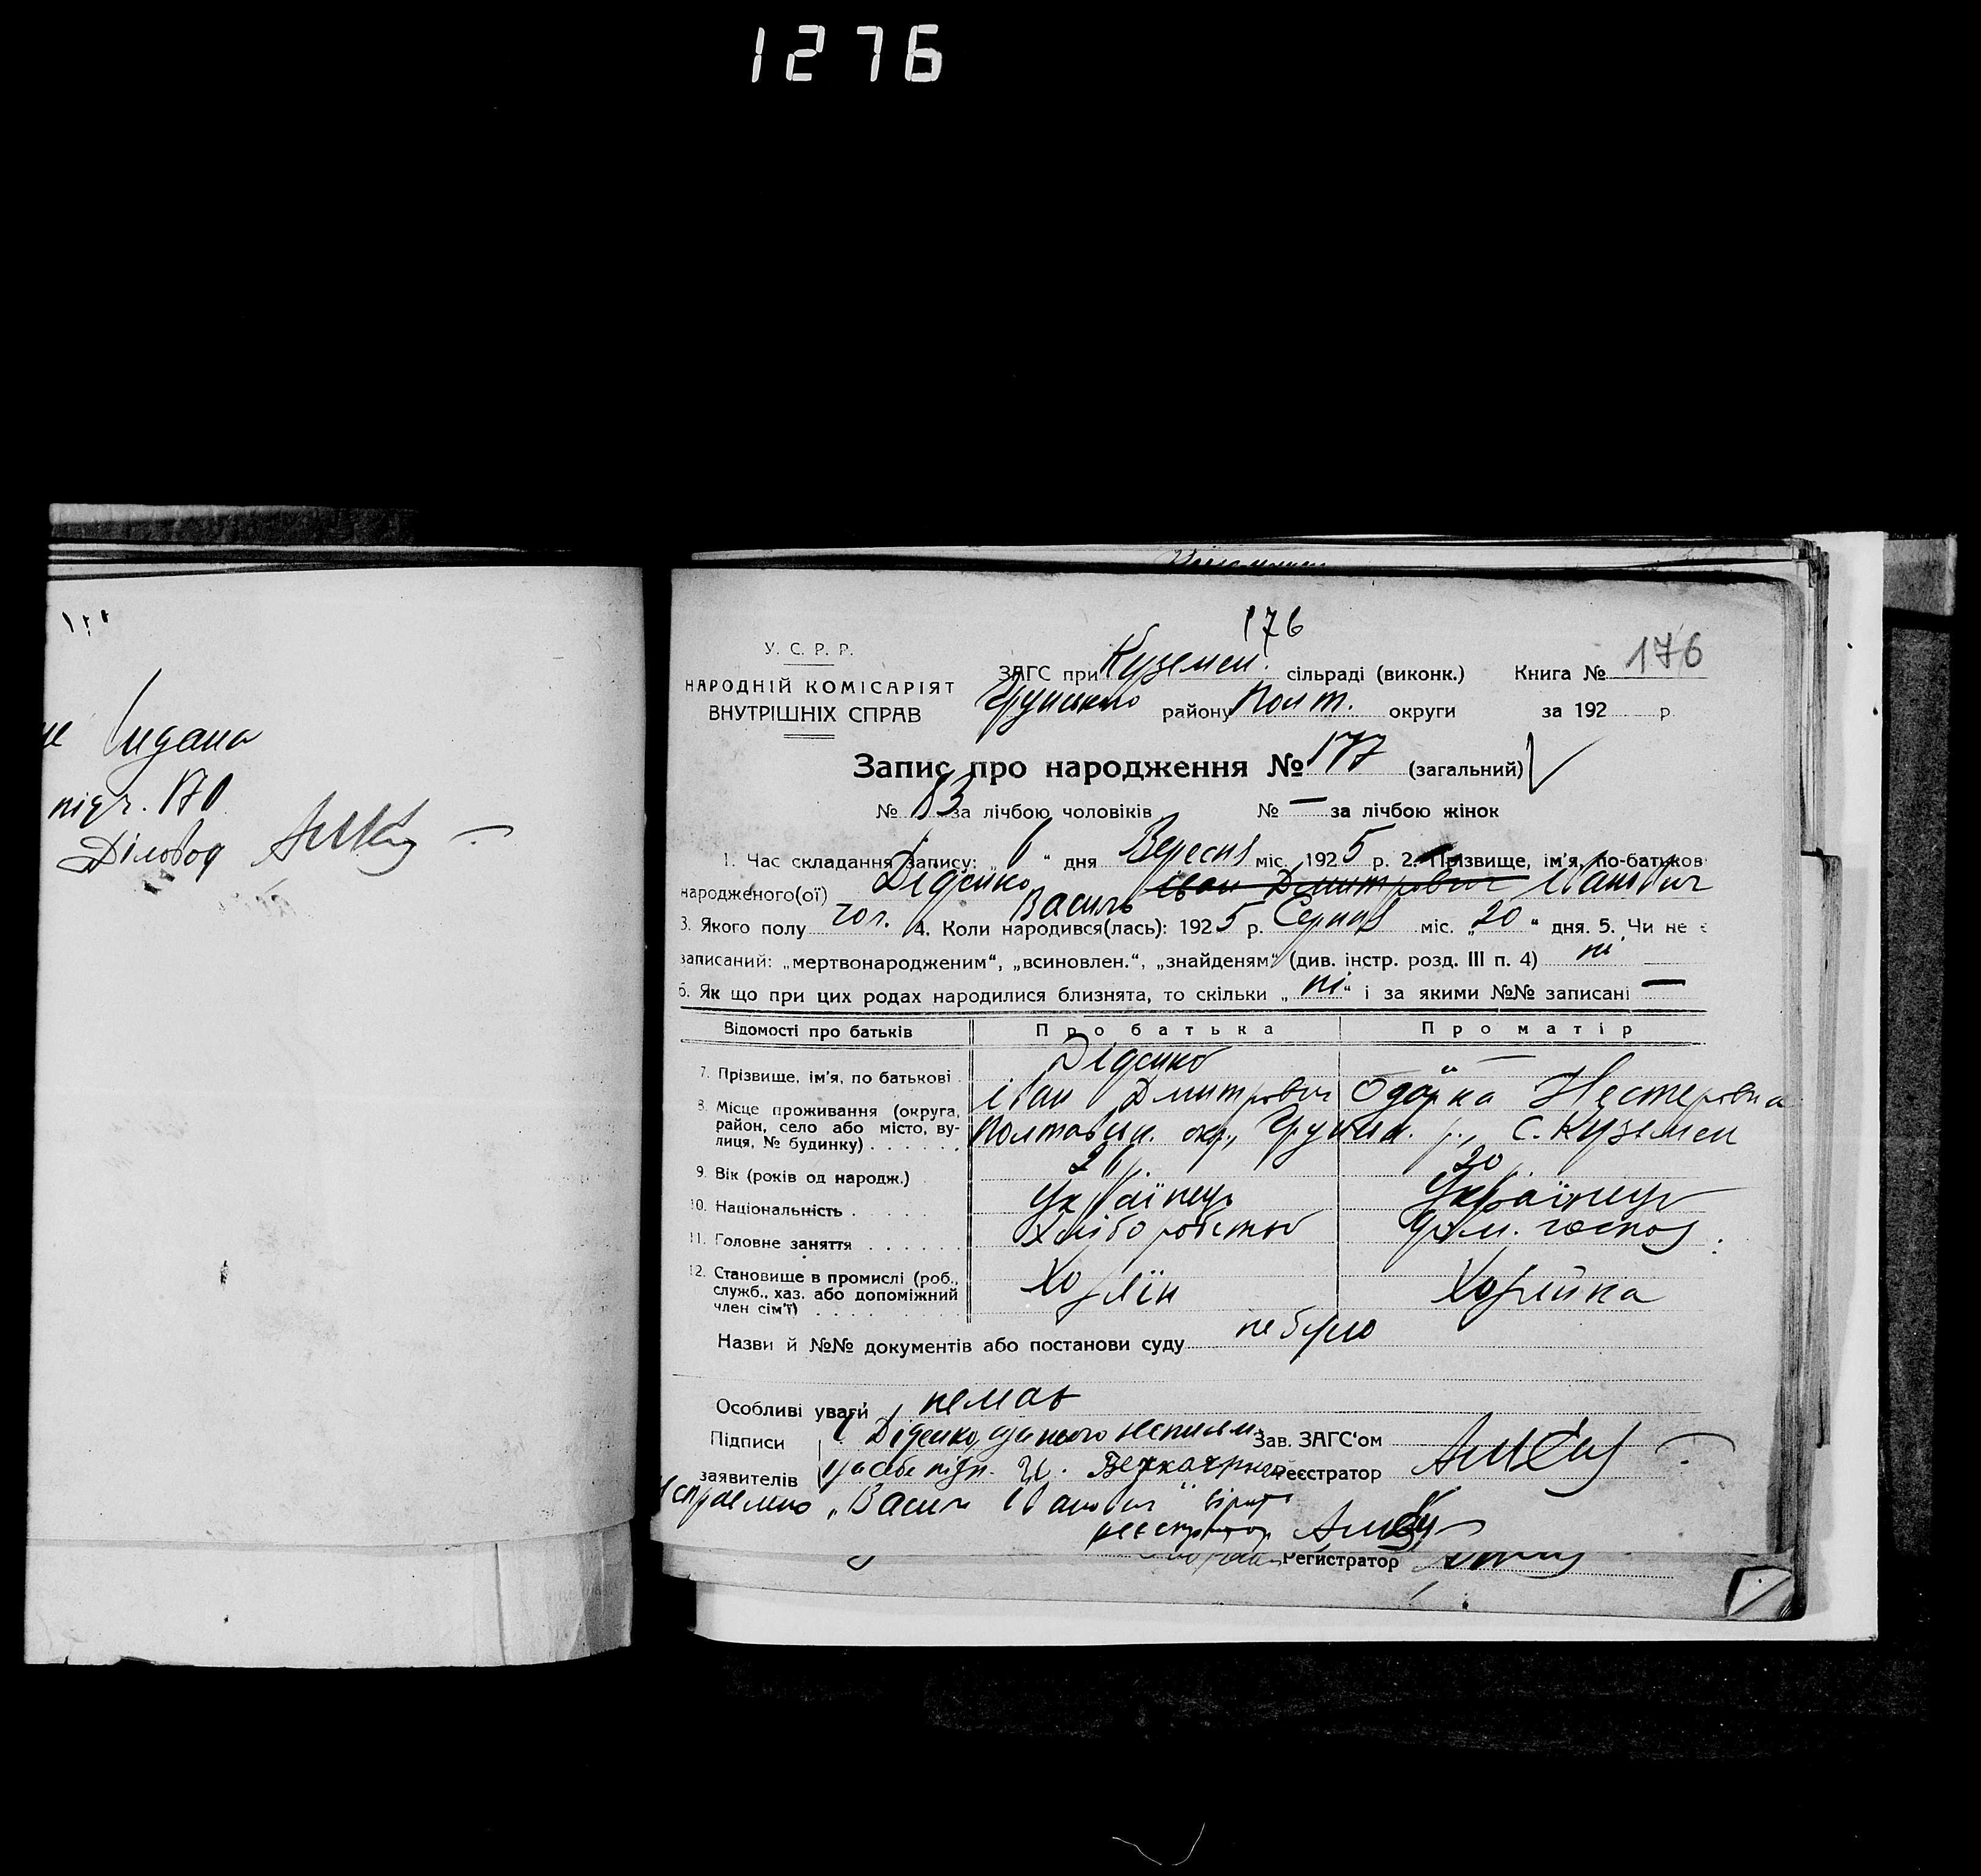 1276
видана
підч. 170
Діловод
176
У. С. Р. Р.
НАРОДНІЙ КОМІСАРІЯТ
ВНУТРІШНІХ СПРАВ
ЗАГС при Куземен. сільраді (виконк.) Книга № 176
Грунського району Полт. округи за 192 р.
Запис про народження № 177 (загальний)
№ 83 за лічбою чоловіків № — за лічбою жінок
1. Час складання запису: „ “ дня Вересня міс. 1925 р. 2. Прізвище, ім'я, по-батьков
народженого(ої) Діденко Василь Іван Дмитрович Іванович
3. Якого полу чол. 4. Коли народився(лась): 1925 р. Серпня міс. „20“ дня. 5. Чи не є
записаний: „мертвонародженим“, „всиновлен.“, „знайденям“ (див. інстр. розд. III п. 4) ні
6. Як що при цих родах народилися близнята, то скільки „ні“ і за якими №№ записані —
Відомості про батьків Про батька Про матір
7. Прізвище, ім'я, по батькові Діденко — „ —
Іван Дмитрович Одарка Нестеровна
8. Місце проживання (округа, район, село або місто, вулиця, № будинку) Полтавськ. окр., Грунськ. р., с. Куземен
9. Вік (років од народж.) 20 р.
10. Національність Українець Українець
11. Головне заняття Хліборобство дом. господ.
12. Становище в промислі (роб., служб., хаз. або допоміжний член сім'ї) Хозяїн Хозяйка
Назви й №№ документів або постанови суду не було
Особливі уваги немає
Підписи Діденко, а за нього неписьм. Зав. ЗАГС'ом
заявителів за себе підп. Реєстратор
Ісправлено „Василь Іванович“ вірить
реєстратор
Регистратор